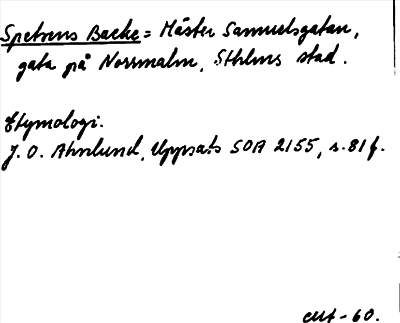 Spetsens Backe = Mäster Samuelsgatan,
gata på Norrmalm, Sthlms stad.
Etymologi.
J. O. Ahnlund, Uppsats SOA 2155, s. 81 f.
-60.